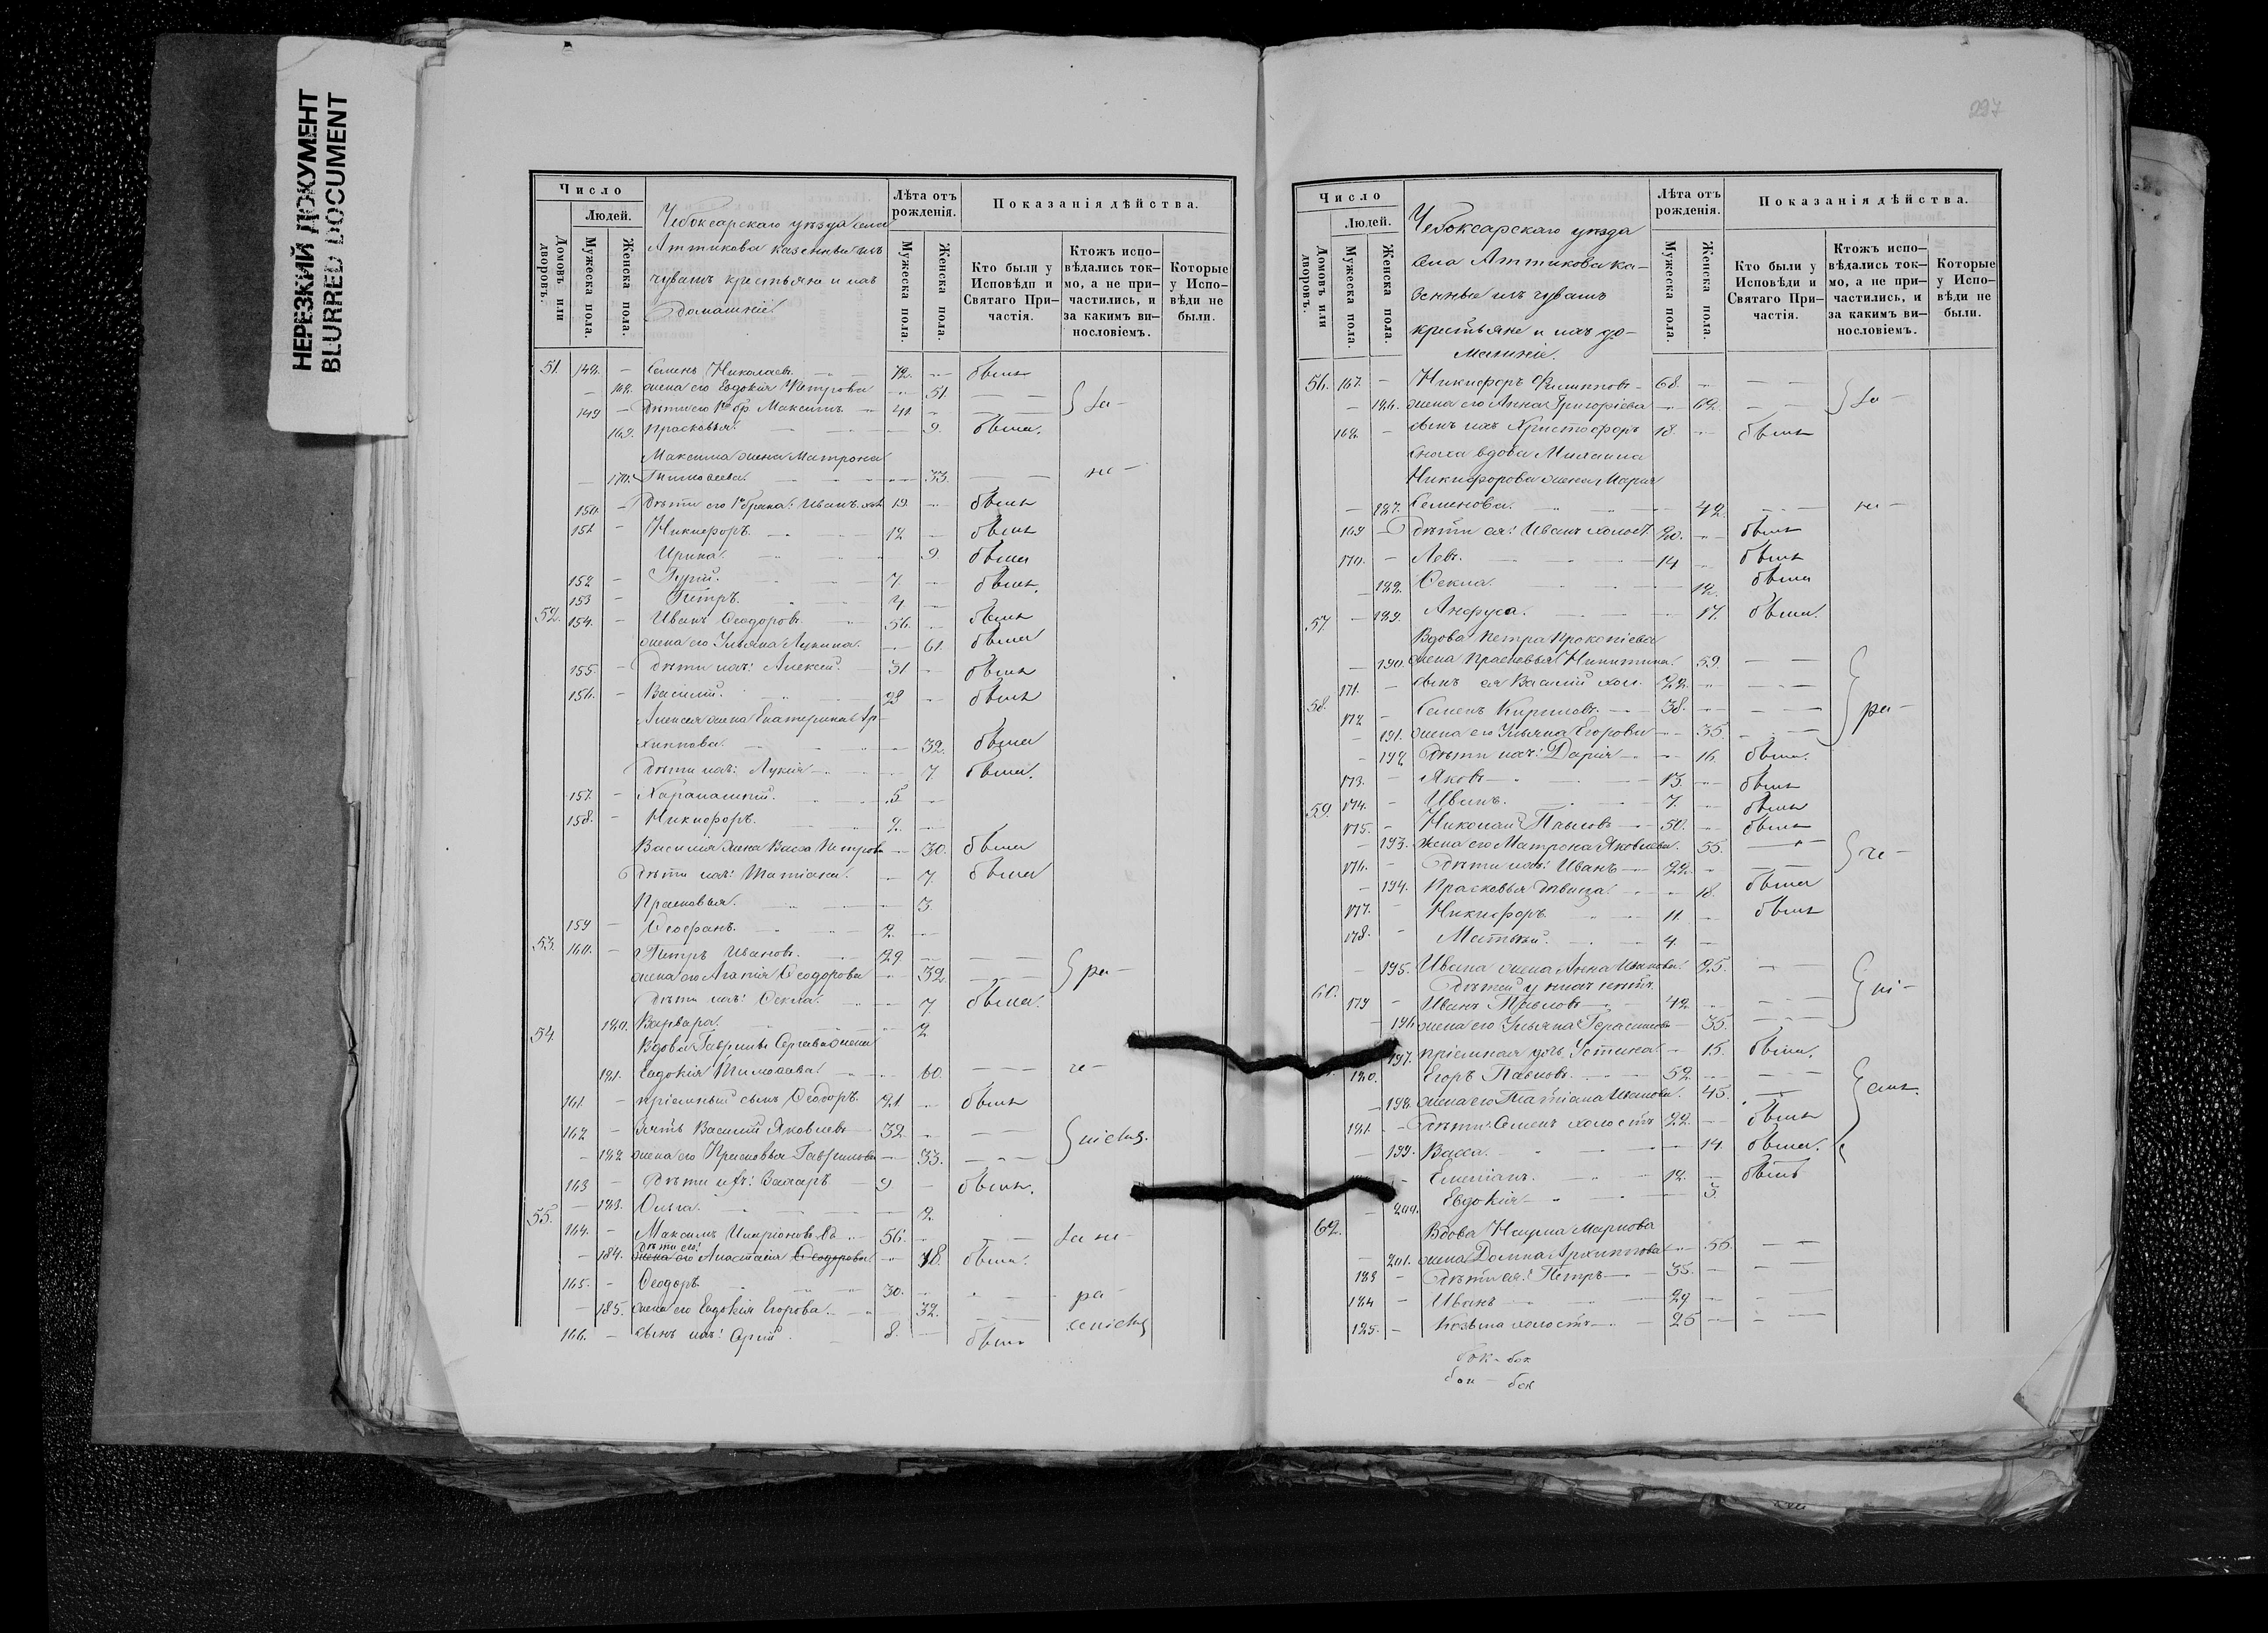 НЕРЕЗКИЙ ДОКУМЕНТ
BLURRED DOCUMENT
Число
Людей.
Домовъ или дворовъ.
Мужеска пола.
Женска пола.
Чебоксарскаго уѣзда села
Аттикова казенные изъ
чувашъ крестьяне и ихъ
домашніе
Лѣта отъ рожденія.
Мужеска пола.
Женска пола.
Показанія дѣйства.
Кто были у Исповѣди и Святаго Причастія.
Ктожъ исповѣдались токмо, а не причастились, и за какимъ винословіемъ.
Которые у Исповѣди не были.
51. 148. – Семенъ Николаевъ 72. былъ
– 168. жена его Евдокія Петрова 51.
149 – Дѣти его 1го бр. Максимъ 41 За
169. Прасковья. 9. была.
Максима жена Матрона
– 170. Тимоѳеева. 33. не –
150. – Дѣти его 1 брака: Иванъ хол. 19. былъ
151 – Никифоръ. 12 былъ
Ирина. 9. была
152 – Гурій. 7. былъ.
153 – Петръ. 4
52. 154. – Иванъ Ѳеодоровъ 56. былъ
жена его Ульяна Лукина. 61. была
155. – Дѣти ихъ: Алексей. 31 былъ
156. – Василій. 28 былъ
Алексея жена Екатерина Ар-
хиппова. 32. была
Дѣти ихъ: Лукія 7 была.
157. – Харалампій. 5
158. – Никифоръ. 2.
Василія жена Васса Петрова 30. была
Дѣти ихъ: Татіана. 7. была
Прасковья. 3
159 – Ѳеофанъ. 2.
53. 160. – Петръ Ивановъ. 29
жена его Агапія Ѳеодорова 32 ра –
Дѣти ихъ: Ѳекла. 7 была.
180. Варвара. 2
54. Вдова Гаврилы Сергѣева жена
181. Евдокія Тимоѳеева 60. че –
161. – пріемный сынъ Ѳеодоръ. 21 былъ
162 – Зять Василій Яковлевъ 32.
– 182 жена его Прасковья Гаврилова 33.
163 – Дѣти ихъ: Захаръ 9. былъ.
– 183. Ольга. 2.
55. 164. – Максимъ Иларіоновъ вд. 56. За не –
– 184. дѣти его: жена его Анастасія Ѳеодорова 18. была.
165. – Ѳеодоръ 30. ра –
– 185. жена его Евдокія Егорова. 32.
166. – сынъ ихъ: 8. былъ
297
Число
Людей.
Домовъ или дворовъ.
Мужеска пола.
Женска пола.
Чебоксарскаго уѣзда
села Аттикова ка-
зенные изъ чувашъ
крестьяне и ихъ до-
машніе.
Лѣта отъ рожденія.
Мужеска пола.
Женска пола.
Показанія дѣйства.
Кто были у Исповѣди и Святаго Причастія.
Ктожъ исповѣдались токмо, а не причастились, и за какимъ винословіемъ.
Которые у Исповѣди не были.
56. 167. – Никифоръ Филипповъ 68.
– 186. жена его Анна Григорьева 62. За –
168. – сынъ ихъ Христофоръ 18. былъ
Сноха вдова Михаила
Никифорова жена Марія
– 187. Семенова. 42. не –
169 – Дѣти ея: Иванъ холост 20. былъ
170. – Левъ. 14 былъ
– 188. Ѳекла. 12. была
57. – 189. Анфуса. 17. была.
Вдова Петра Прокопіева
– 190. жена Прасковья Никитина. 59.
171. – сынъ ея Василій хол. 22.
58. 172 – Семенъ Кириловъ. 38. ра –
– 191. жена его Ульяна Егорова 35.
– 192 Дѣти ихъ: Дарія 16. была.
173. – Яковъ 13. былъ
174. – Иванъ. 7. былъ
59. 175. – Николай Павловъ 50. былъ
– 193. жена его Матрона Яковлева. 55. че –
176. – Дѣти ихъ: Иванъ 22.
– 194. Прасковья дѣвица. 18. была
177. – Никифоръ 11. былъ
178. – Матвей. 4.
– 195. Ивана жена Анна Иванова. 25.
Дѣтей у нихъ нѣтъ
60. 179 – Иванъ Павловъ 42 ні –
– 196 жена его Ульяна Герасимова 35.
197. пріемная дочь Устина 15. была.
180. Егоръ Павловъ. 52.
– 198. жена его Татіана Иванова. 45.
181. – Дѣти: Семенъ холостъ 22. былъ
– 199. Васса. 14. была.
– Емеліанъ. 12. былъ
– 200. Евдокія 3.
62. Вдова Наума Маркова
– 201. жена Домна Архиппова 56
183 – Дѣти ея: Петръ 35.
184 – Иванъ 29
185. – Козьма холостъ 25